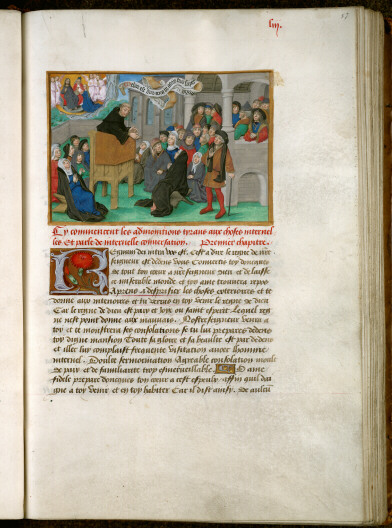 liij.
Cy commencent les admonitions tyrans aux choses internel
les Et parle de internelle conversation. Premier chapitre.
Regnum dei intra vos est. Cest a dire le regne de nre
seigneur est dedens vous Convertis toy doncques
de tout ton cueur a nre seigneur dieu et de laisse
ce miserable monde et ton ame trouvera repos
Aprens a despriser les choses exteriores et te
donne aux interiores et tu verras en toy venir le regne de dieu
Car le regne de dieu est paix et ioye ou saint esperit Lequel reg
ne nest point donne aux mauuais. Nostre seigneur venra a
toy et te monstrera ses consolations se tu lui prepares dedens
toy digne mansion Toute sa gloire et sa beaulte est par dedens
et illec luy complaist frequente visitation auec lhomme
internel. Doulce sermonication Agreable consolation moult
de paix et de familiarite trop esmerueillable. O ame
fidele prepare doncques ton cueur a cest espeulx affin quil dai
gne a toy venir et en toy habiter Car il dist ainsy. Se aulcu